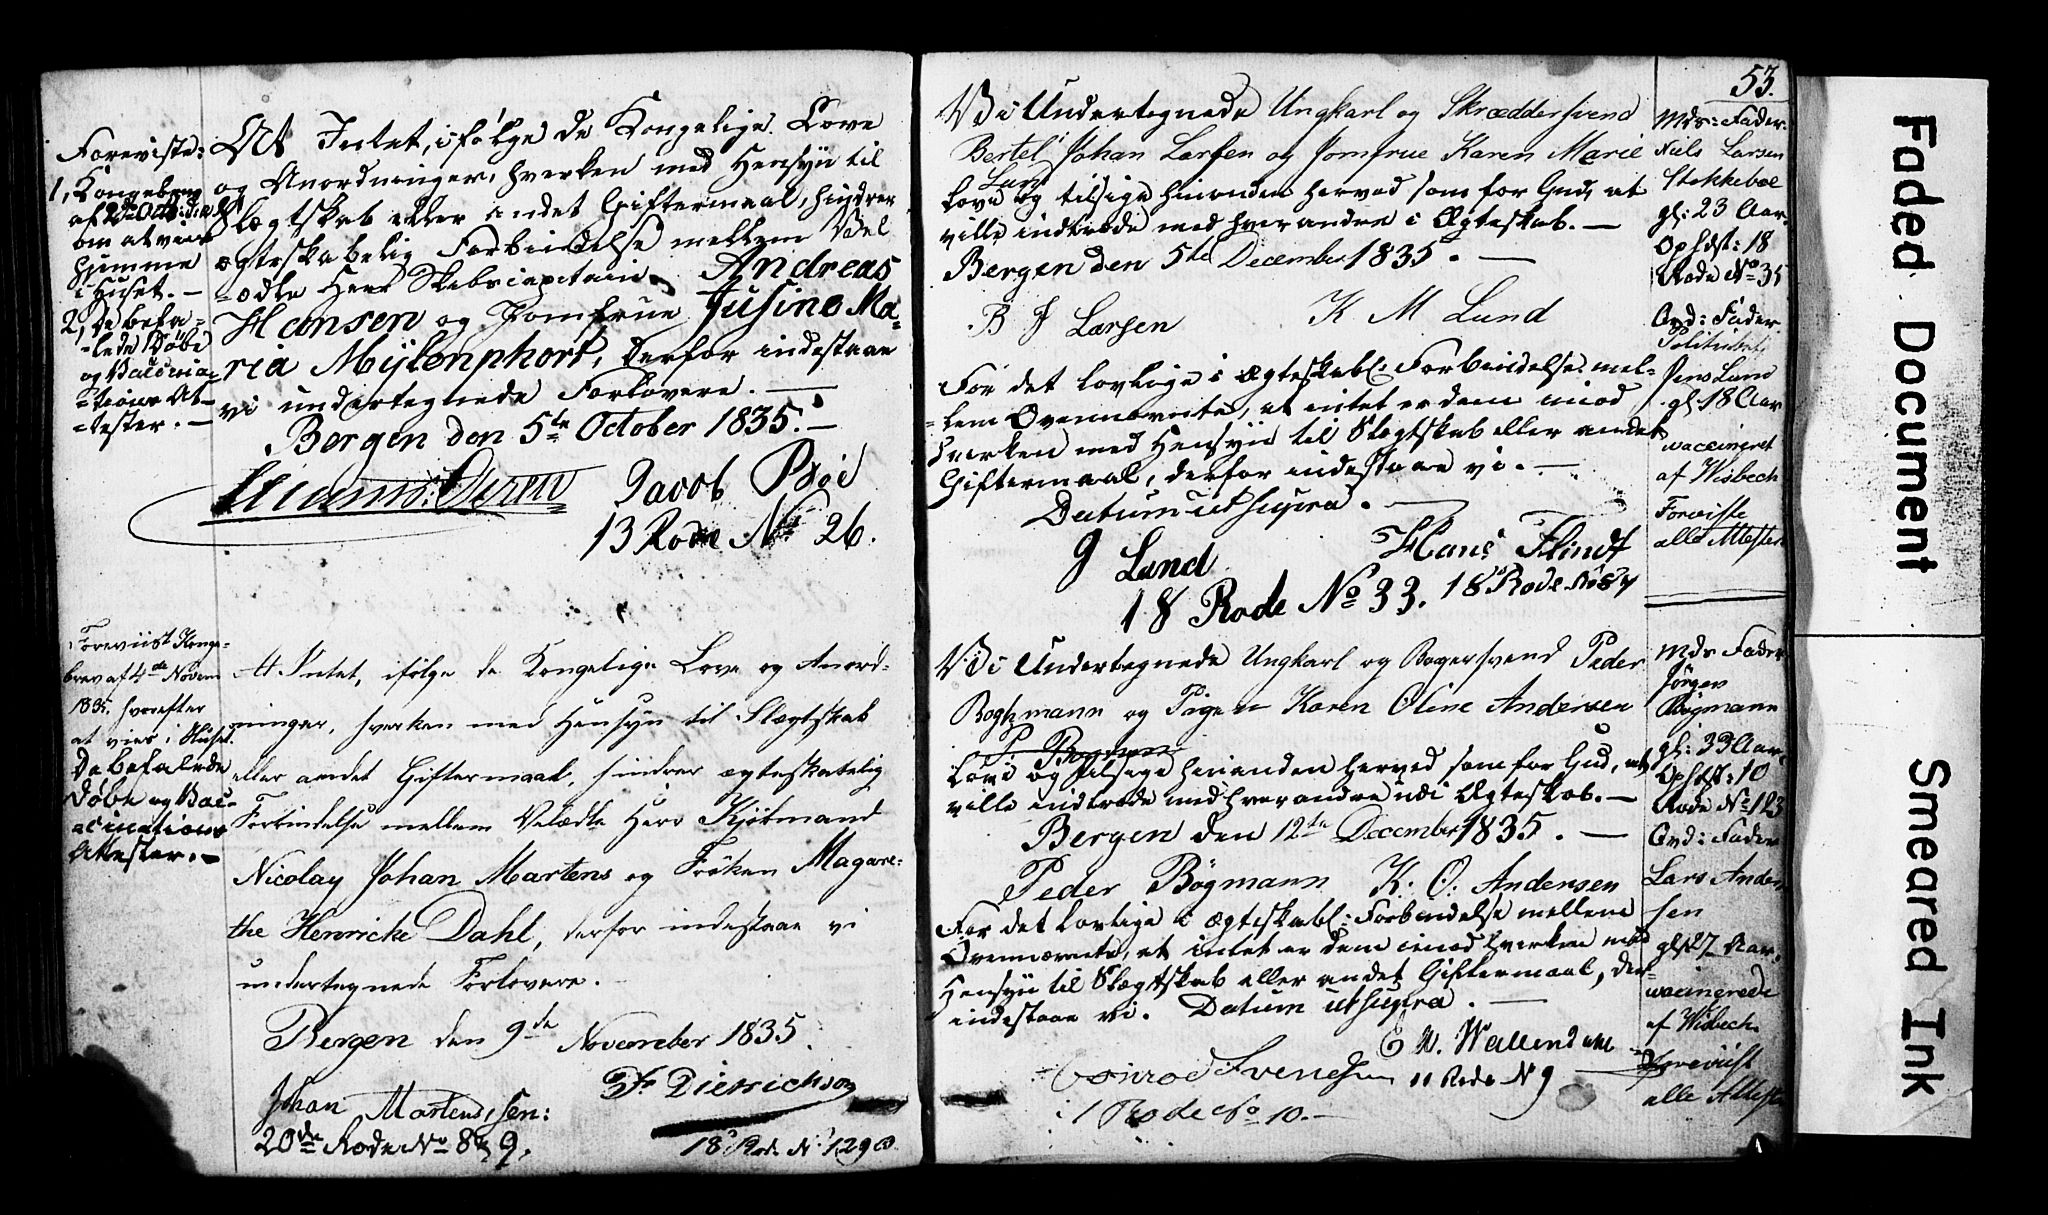 Foreviste:
1, Kongebrev
af 2den Octb: d. A.
om at vies
hjemme
i Huset. —
2, De befa-
-lede Døbe
og Vaccina-
-tions At-
-tester. —
At Intet, ifølge de Kongelige Love
og Anordninger, hverken med Hensyn til
Slægtskab eller andet Giftermaal, hindrer
ægteskabelig Forbindelse mellem Vel
-ædle Herr Skibscapitain Andreas
Hansen og Jomfrue Jusine Ma-
ria Mylenphort, derfor indestaae
vi undertegnede Forlovere. —
Bergen den 5te October 1835. —
Jacob Bøe
13 Rode No 26.
Foreviist Konge-
brev af 4de Novem
1835, hvorefter
at vies i Huset.
De befalede
Døbe og Vac-
-cinations
Attester. —
At Intet, ifølge de Kongelige Love og Anord-
ninger, hverken med Hensyn til Slægtskab
eller andet Giftermaal, hindrer ægteskabelig
Forbindelse mellem Velædle Herr Kjøbmand
Nicolay Johan Martens og Frøken Magare-
the Henricke Dahl, derfor indestaae vi
undertegnede Forlovere.
Bergen den 9de November 1835.
Johan Martens, sen:
20de Rode No 8 & 9.
Fr Dietrichson
18 Rode No 129
53.
Vi Undertegnede Ungkarl og Skræddersvend
Bertel Johan Larsen og Jomfrue Karen Marie
Lund
love og tilsige hinanden herved som for Gud, at
ville indtræde med hverandre i Ægteskab. —
Bergen den 5te December 1835. —
B J Larsen K M Lund
For det lovlige i ægteskabl: Forbindelse mel-
-lem Ovennævnte, at intet er dem imod
hverken med Hensyn til Slægtskab eller andet
Giftermaal, derfor indestaae vi. —
Datum ut supra. —
J Lund
18 Rode No 33.
Hans Flindt
18 Rode No
Mds: Fader:
Niels Larsen
Stekkeboe
gl: 23 Aar.
Opholdst: 18
Rode No 35
Qvd: Fader.
Politibetj
Jens Lund
gl: 18 Aar
vaccineret
af Wisbech
Foreviste
alle Attester
Vi Undertegnede Ungkarl og Bagersvend Peder
Boghmann og Pigen Karen Oline Andersen
P. Bogman
love og tilsige hinanden herved som for Gud, at
ville indtræde med hverandre udi Ægteskab. —
Bergen den 12te December 1835. —
Peder Bögmann K. O. Andersen
For det lovlige i ægteskabl: Forbindelse mellem
Ovennævnte, at intet er dem imod hverken med
Hensyn til Slægtskab eller andet Giftermaal, der-
indestaae vi. Datum ut supra. —
Conrad Svendsen
i 1 Rode No 10. —
E W. Wallendahl
11 Rode N 9
Mds Fader
Jørgen
Bögmann
gl: 33 Aar.
Opholdst: 10
Rode No 123
Qvd: Fader
Lars Ander
sen
gl: 27 Aar.
vaccinerede
af Wisbech.
Foreviist
alle Atteste
Faded Document
Smeared Ink